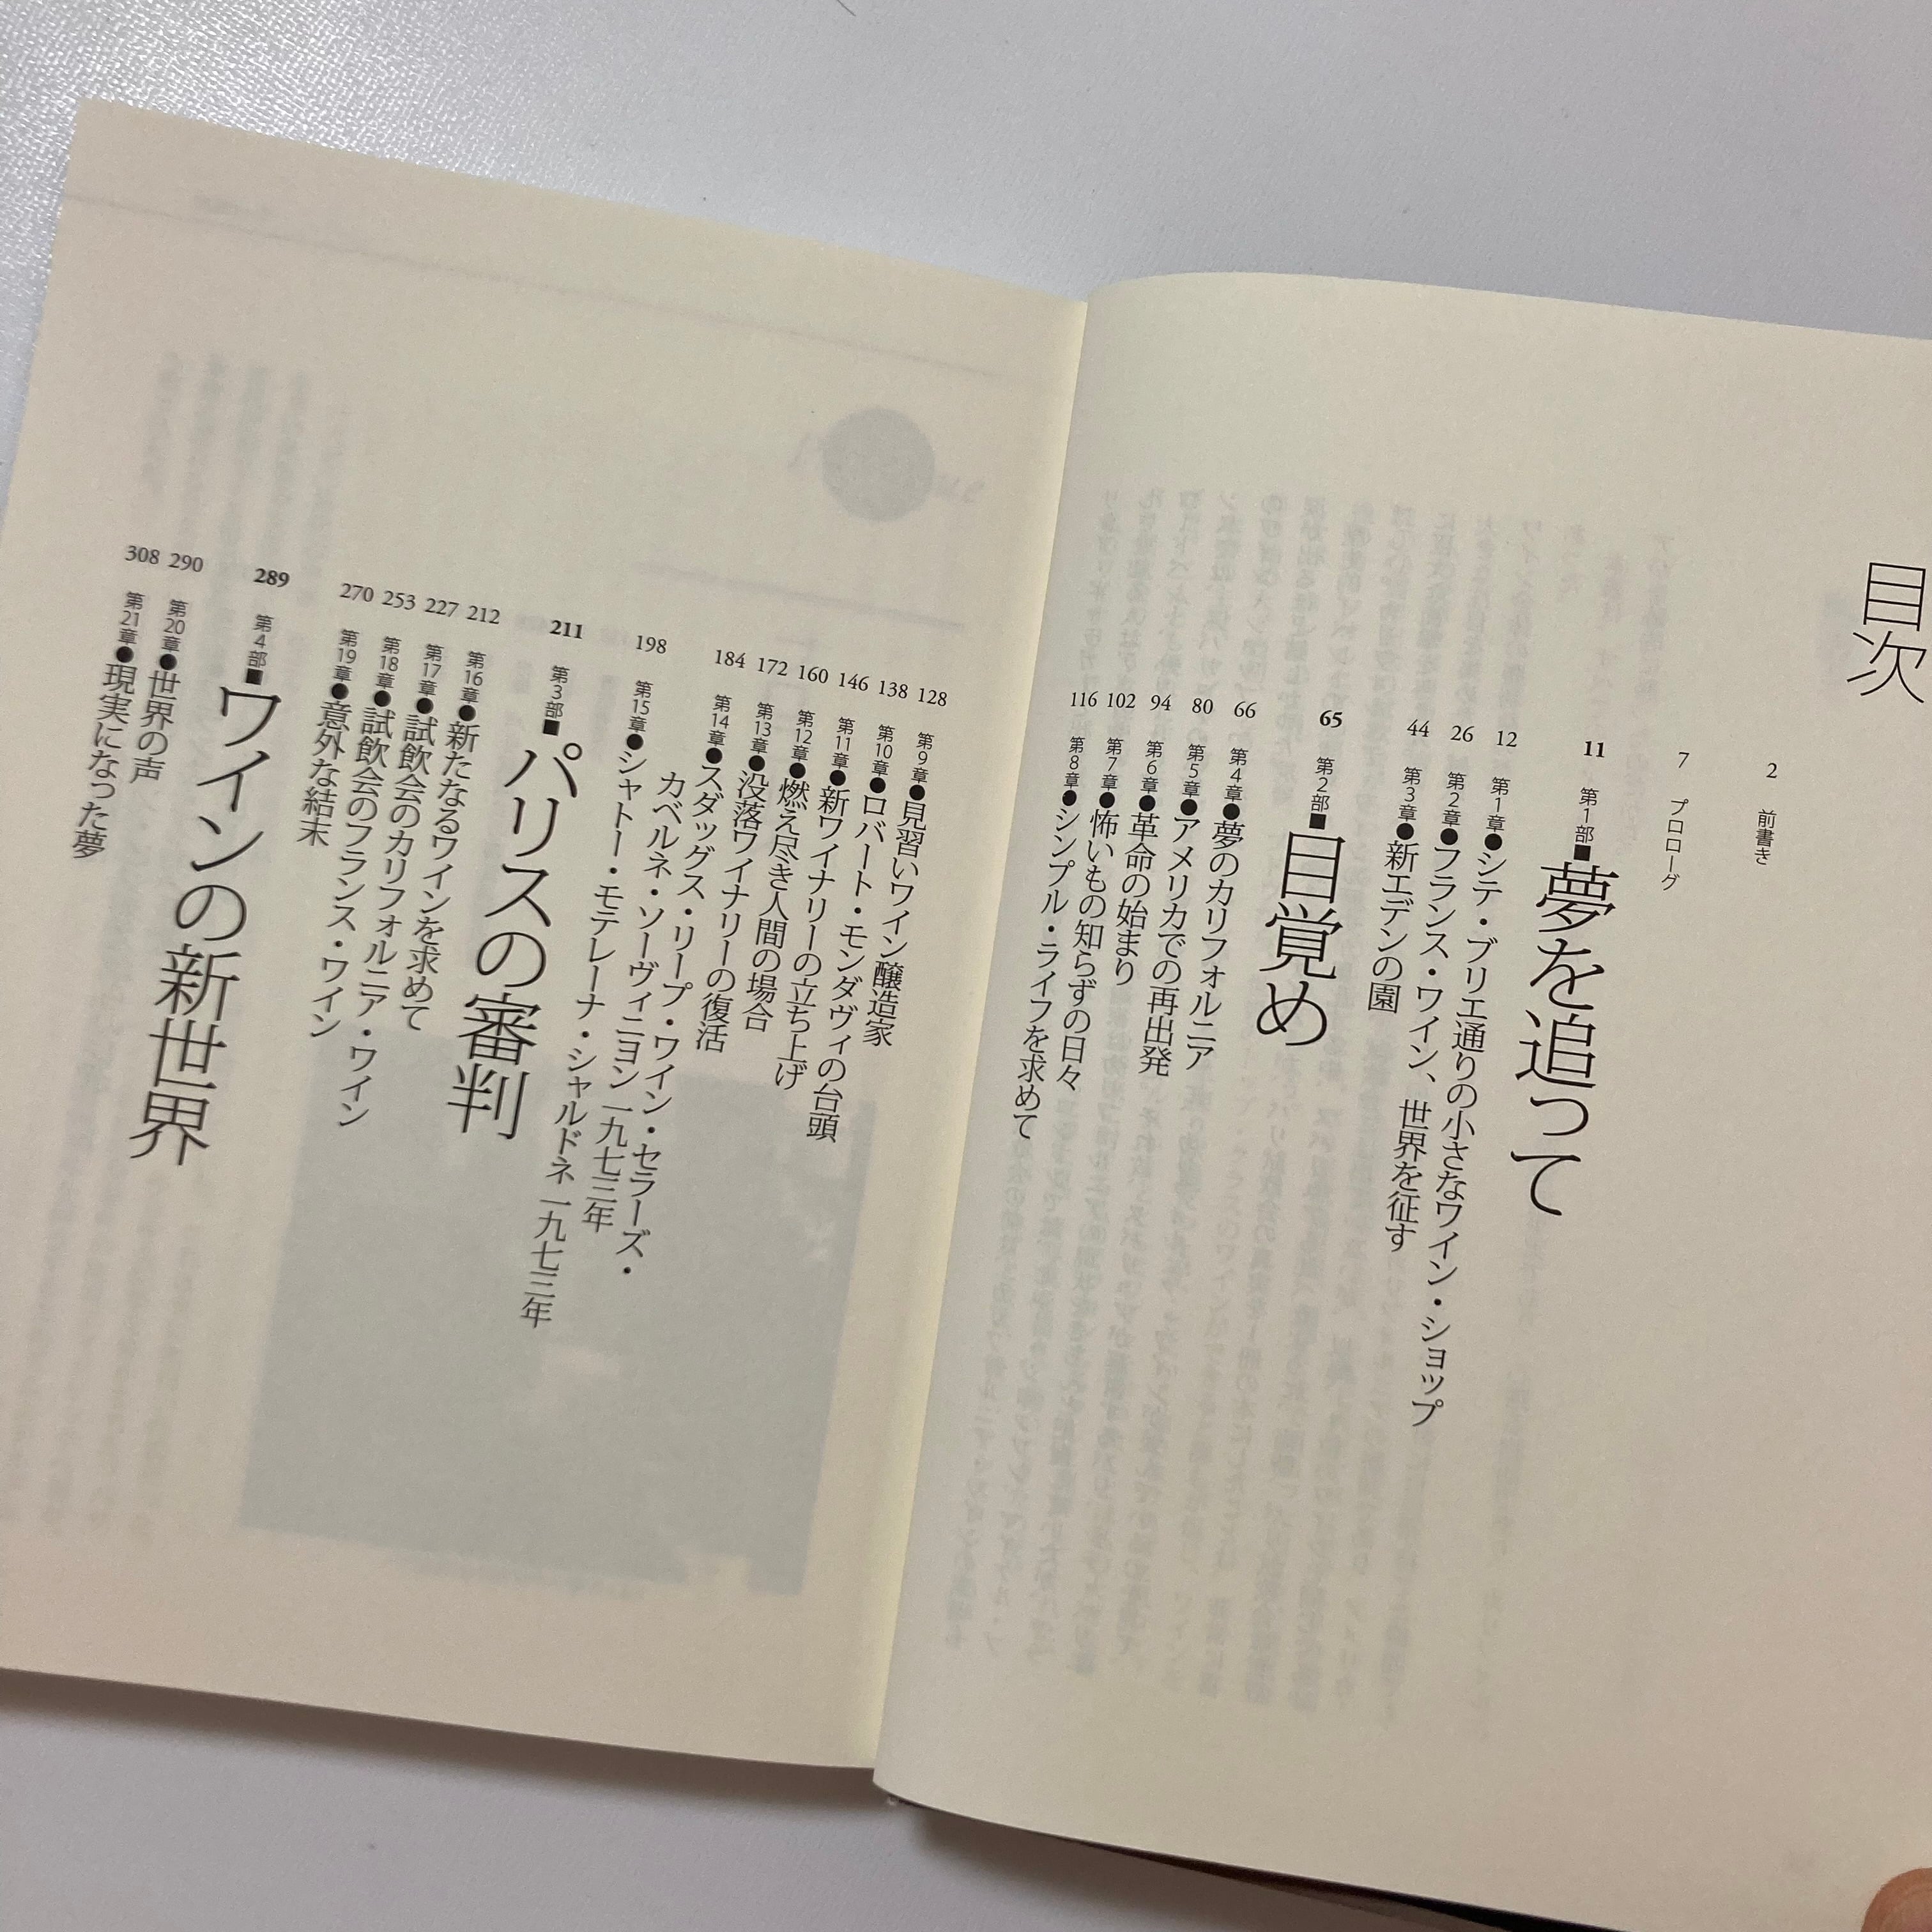 目次
2 前書き
7 プロローグ
11 第1部■夢を追って
12 第1章●シテ・ブリエ通りの小さなワイン・ショップ
26 第2章●フランス・ワイン、世界を征す
44 第3章●新エデンの園
65 第2部■目覚め
66 第4章●夢のカリフォルニア
80 第5章●アメリカでの再出発
94 第6章●革命の始まり
102 第7章●怖いもの知らずの日々
116 第8章●シンプル・ライフを求めて
128 第9章●見習いワイン醸造家
138 第10章●ロバート・モンダヴィの台頭
146 第11章●新ワイナリーの立ち上げ
160 第12章●燃え尽き人間の場合
172 第13章●没落ワイナリーの復活
184 第14章●スダッグス・リープ・ワイン・セラーズ・
カベルネ・ソーヴィニヨン 一九七三年
198 第15章●シャトー・モテレーナ・シャルドネ 一九七三年
211 第3部■パリスの審判
212 第16章●新たなるワインを求めて
227 第17章●試飲会のカリフォルニア・ワイン
253 第18章●試飲会のフランス・ワイン
270 第19章●意外な結末
289 第4部■ワインの新世界
290 第20章●世界の声
308 第21章●現実になった夢